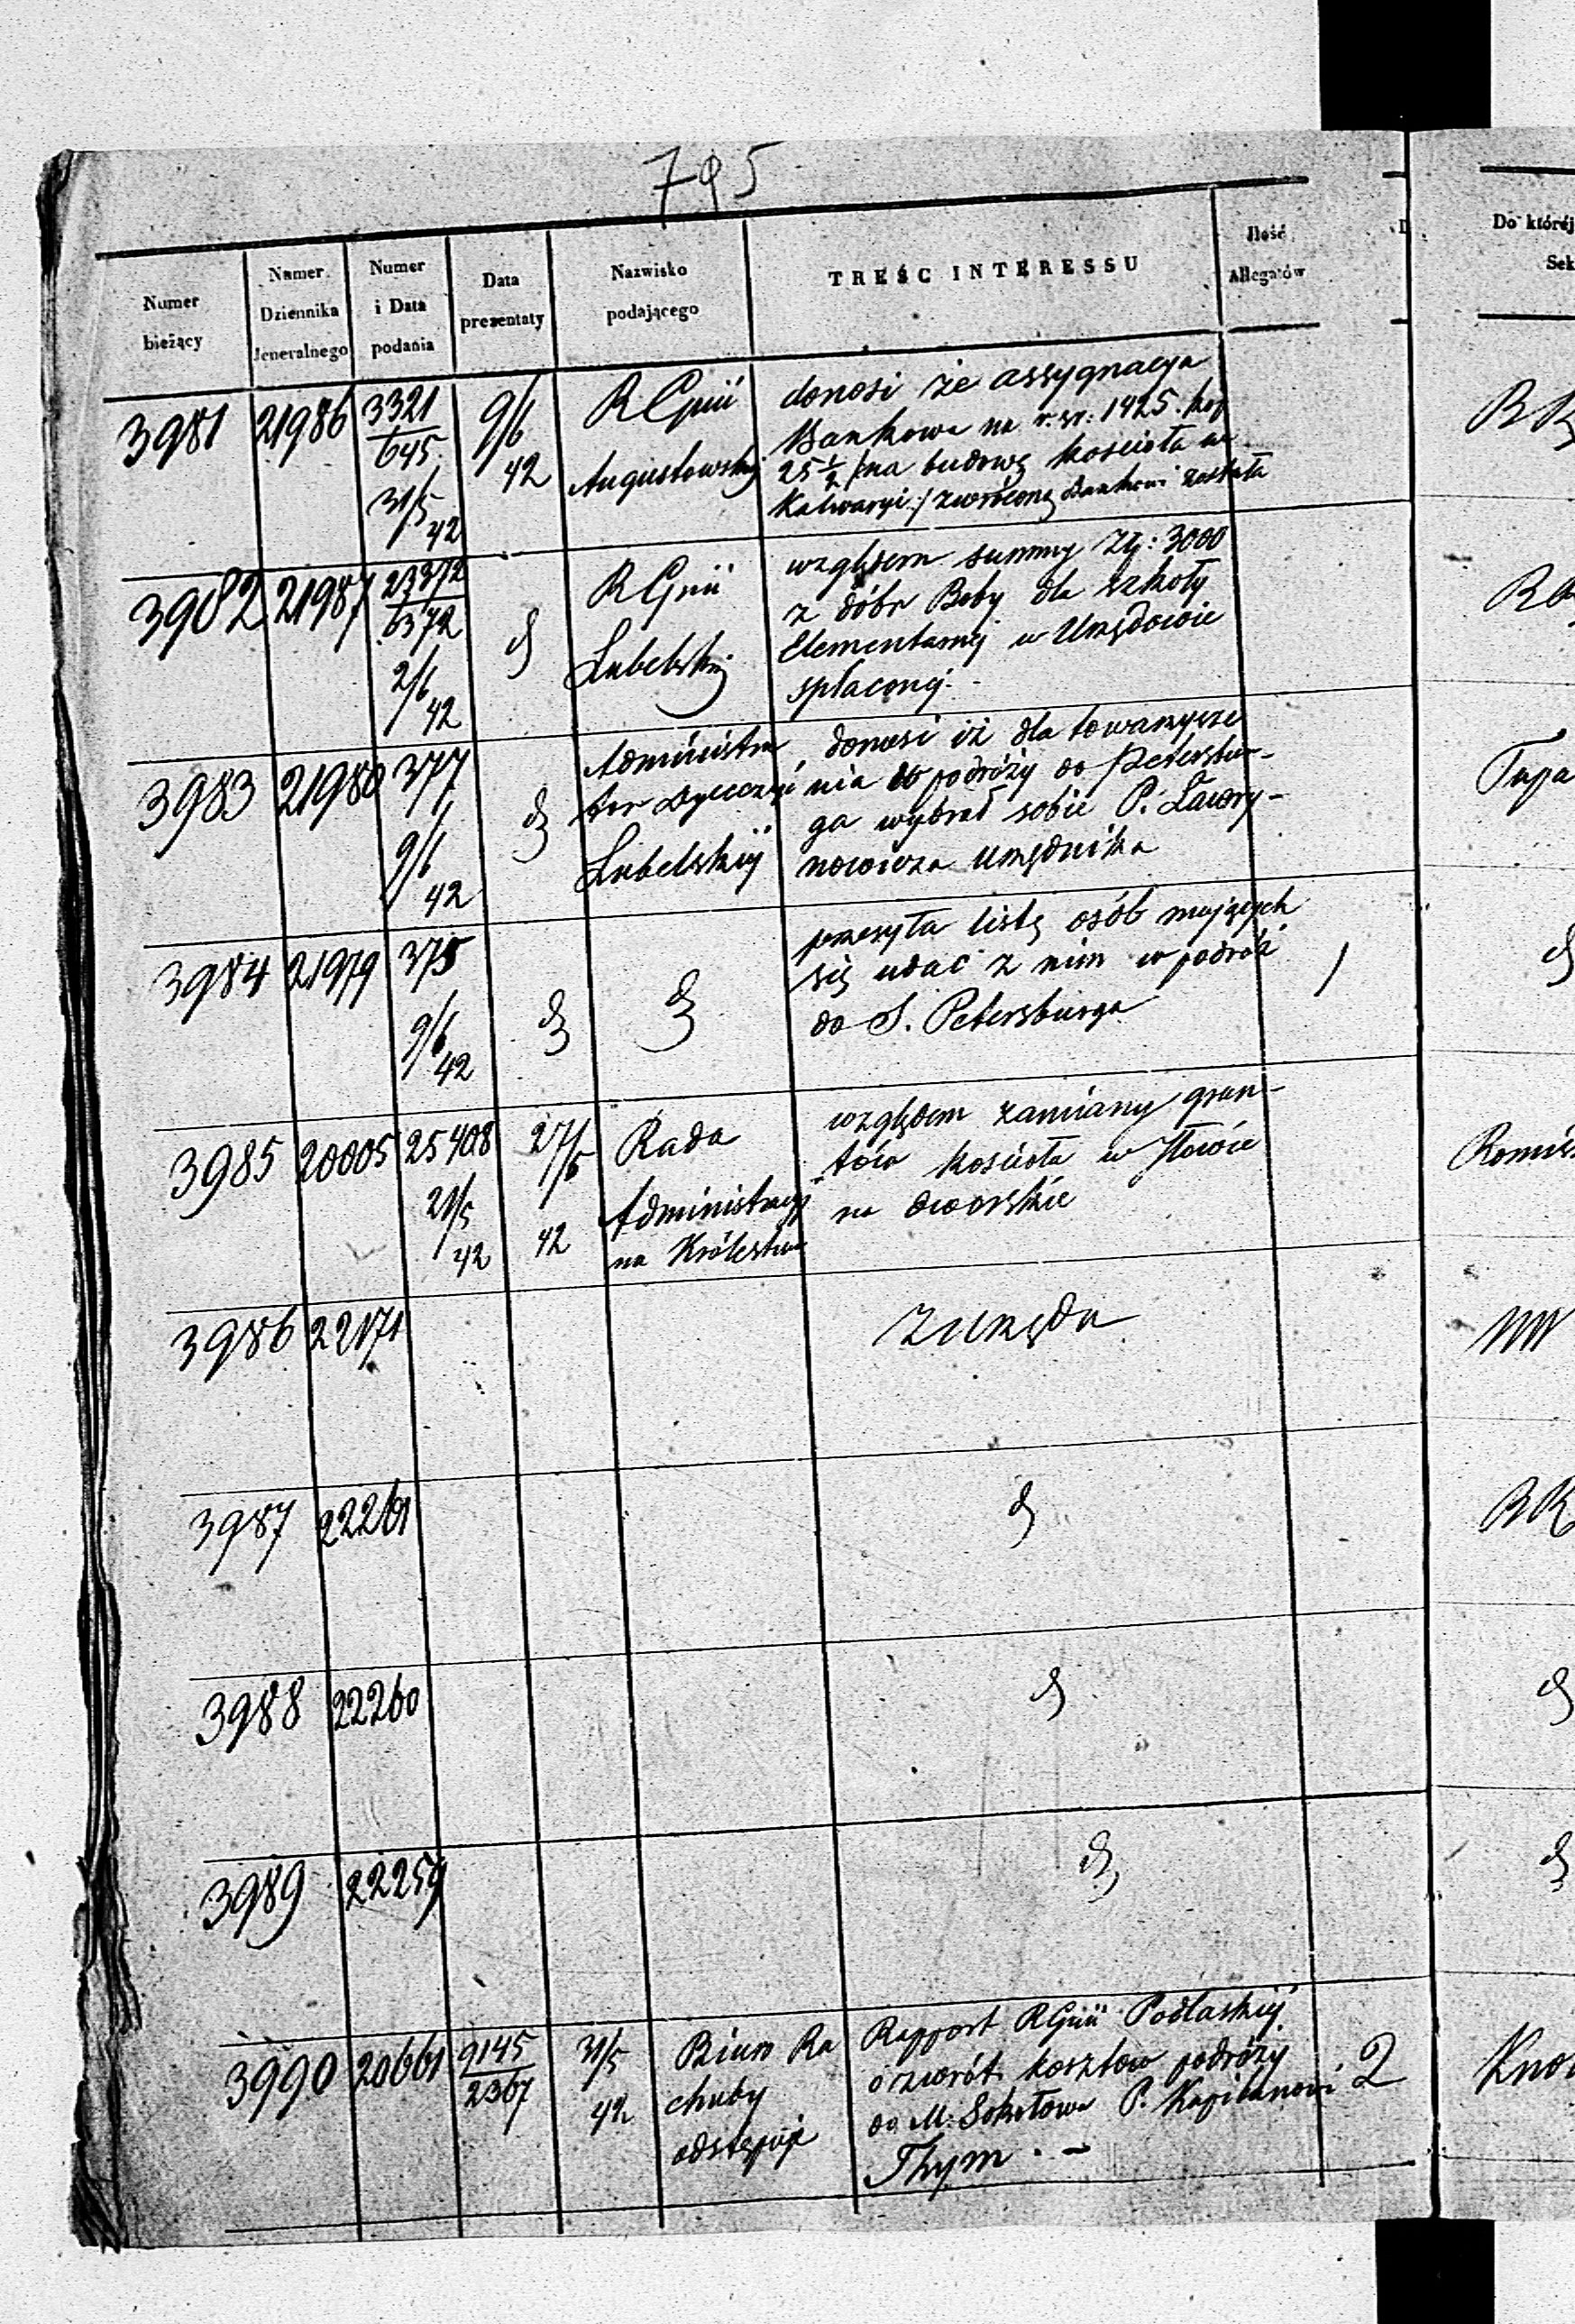 795
Numer bieżący
Numer Dziennika Jeneralnego
Numer i Data podania
Data prezentaty
Nazwisko podającego
TREŚC INTERESSU
Ilość Allegatów
Do której
Sek
3981 21986 3321/645 31/5 42 9/6 42
R Gnii
Augustowskiej
donosi że assygnacya
Bankowa na r. sr: 1425. kop
25 1/2 /:na budowę kościoła w
Kalwaryi:/ zwrócona Bankowi została
3982 21987 23372/6372 2/6 42 d
R Gnii
Lubelskiej
względem summy Złp: 3000
z dóbr Boby dla szkoły
Elementarnej w Urzędowie
spłaconej.
3983 21980 377 9/6 42 d
Administra
tor Dyecezyi
Lubelskiej
donosi iż dla towarzysze
nia w podróży do Petersbur-
ga wybrał sobie P. Ławry-
nowicza urzędnika
3984 21979 375 9/6 42 d
d
przesyła listę osób mających
się udać z nim w podróż
do S. Petersburga
1
d
3985 20005 25408 21/5 42 27/5 42
Rada
Administracyj
na Królestwa
względem zamiany grun-
tów kościoła w Iłowie
na dworskie
3986 22171
z Urzędu
3987 22261
d
3988 22260
d
d
3989 22259
d
d
3990 20661 9145/2367 31/5 42
Biuro Ra
chuby
odstępuje
Rapport R Gnii Podlaskiej
o zwrót kosztów podróży
do M. Sokołowa P. Kapitanowi
Thym . -
2